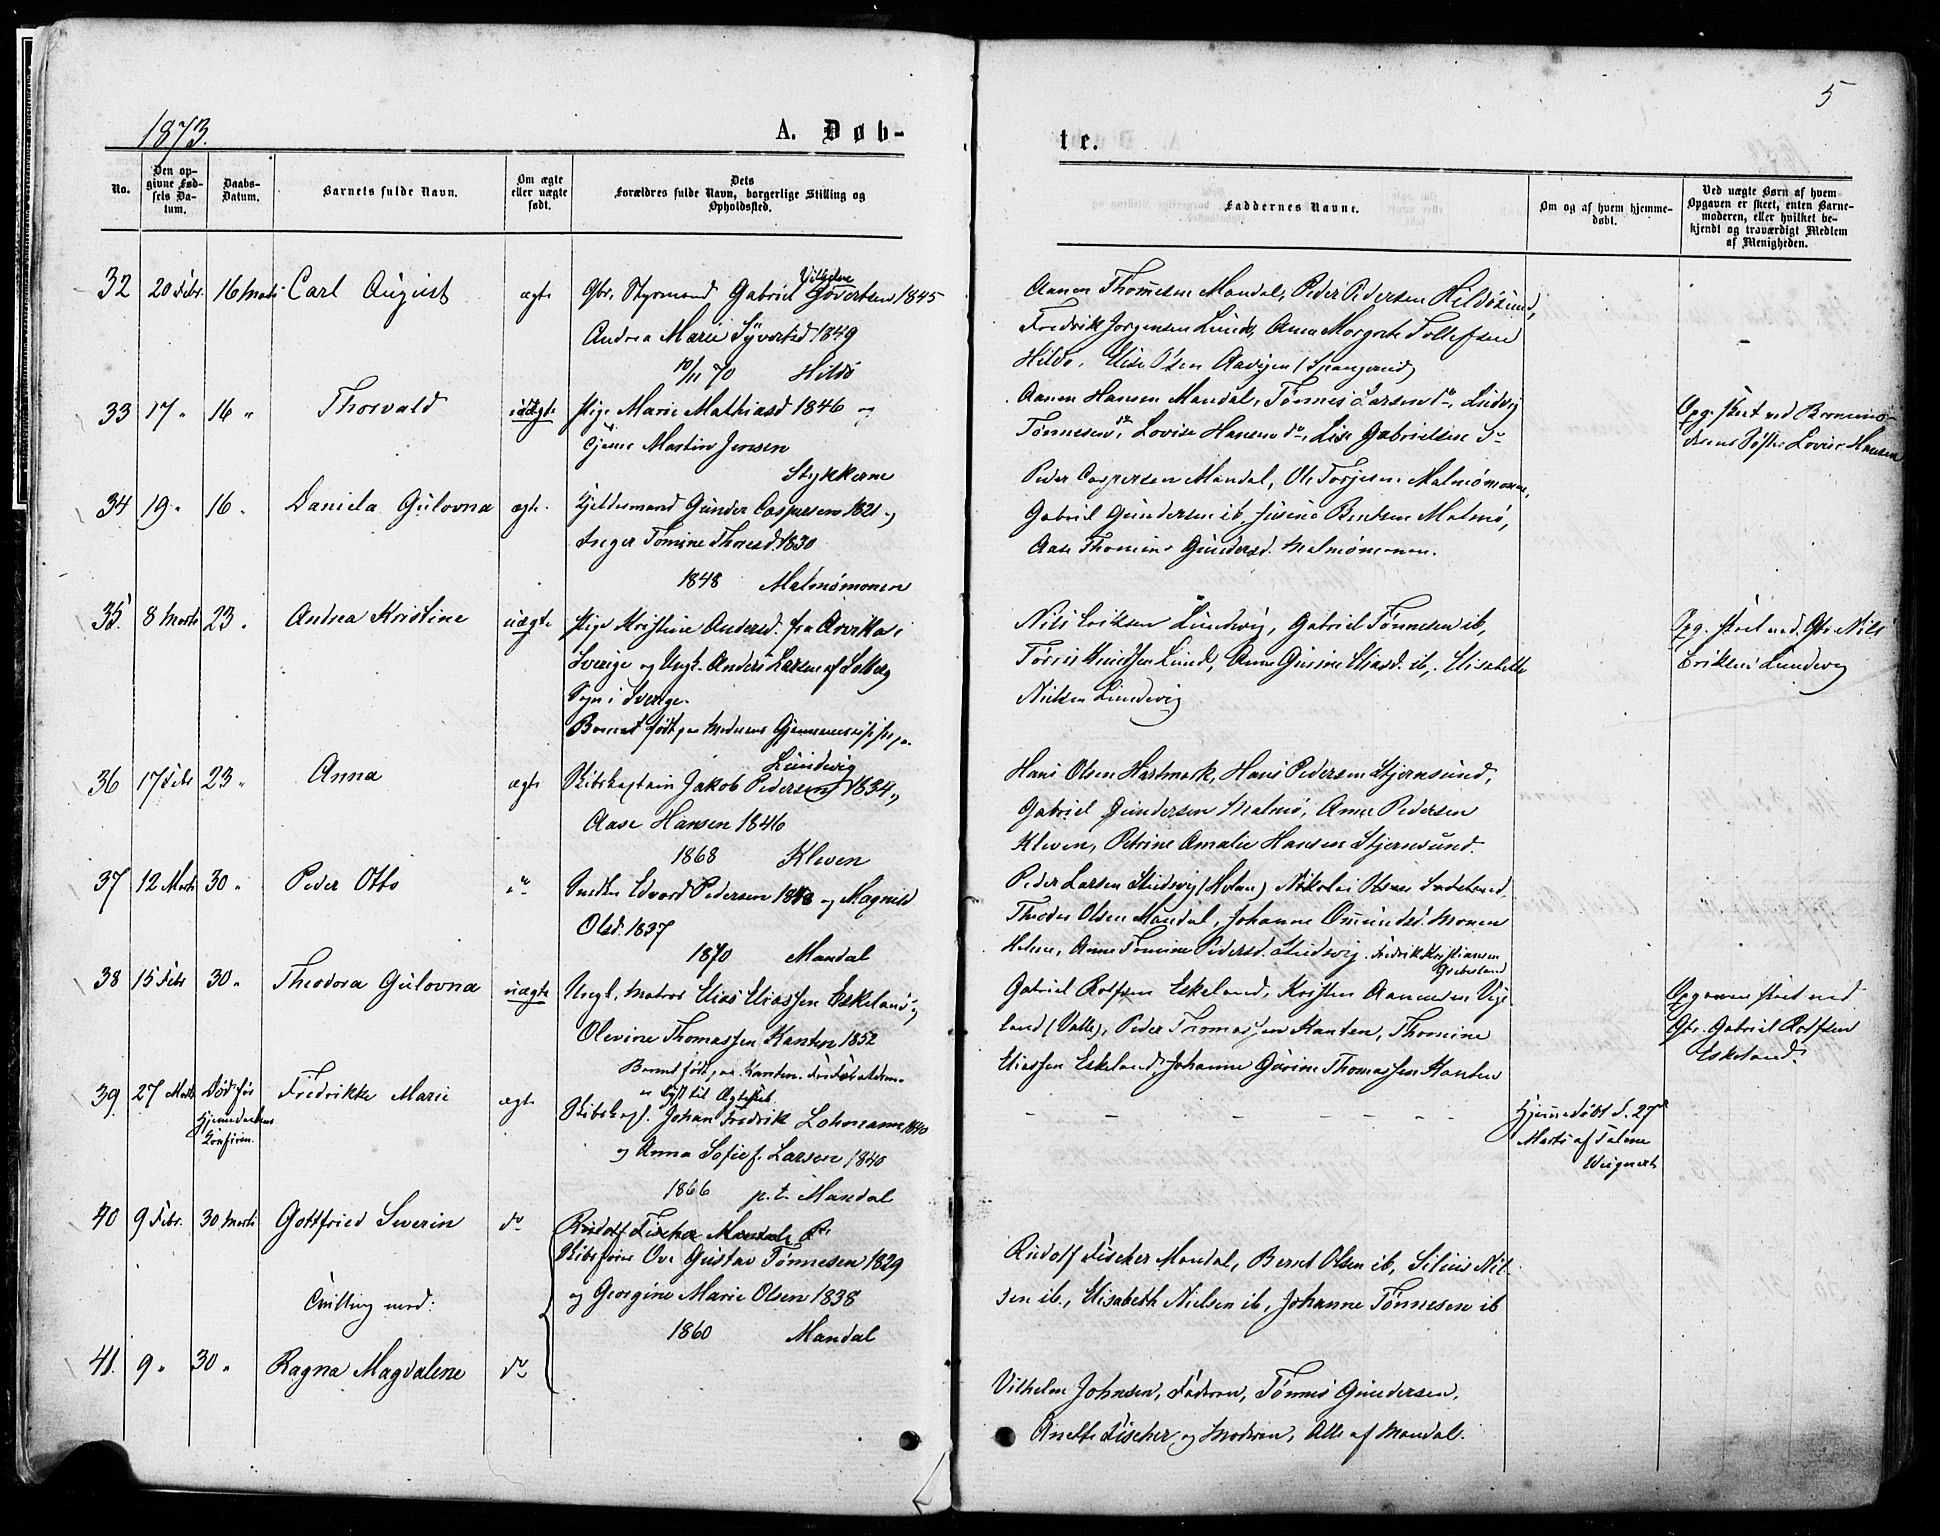 1873.
A. Døb-
te.
5
No.
Den op-
givne Fød-
sels Da-
tum.
Daabs-
Datum.
Barnets fulde Navn.
Om ægte
eller uægte
født.
Dets
Forældres fulde Navn, borgerlige Stilling og
Opholdssted.
Faddernes Navne.
Om og af hvem hjemme-
døbt.
Ved uægte Børn af hvem
Opgaven er skeet, enten Barne-
moderen, eller hvilket be-
kjendt og troværdigt Medlem
af Menigheden.
32 20 Febr. 16 Marts Carl August ægte Gbr. Styrmand Gabriel Vilhelm Govertsen 1845
Andrea Marie Syvertsd 1849
10/11 70 Hildø
Aanen Thomesen Mandal, Peder Pedersen Hildøsund,
Fredrik Jorgensen Lund, Anne Margrete Tollefsen
Hildø, Elise Olsen Aavigen (Spangereid)
33 17 " 16 " Thorvald uægte Pige Marie Mathiasd 1846 og
Martin Jensen
Stykkerne
Aanen Hansen Mandal, Tønnes Larsen do, Ludvig
Tønnesen do, Lovise Hansen do, Lise Gabrielsen do
Opg. skeet ved Barnemo-
derens Søster Lovise Hansen
34 19 " 16 " Daniela Gulovna ægte Gunder Caspersen 1821 og
Inger Tomine Thorsd. 1830
1848 Malmømonen
Peder Caspersen Mandal, Ole Torjesen Malmømonen,
Gabriel Gundersen ib, Bentsen Malmø,
Aase Thomine Gundersd. Malmømonen.
35. 8 Marts 23 " Andrea Kristine uægte Pige Kristine Andersd. fra Arvika i
Sverige og Ungk. Anders Larsen af
Sogn i Sverige.
Barnet født paa Moderens Gjennemreise
Lundevig
Nils Eriksen Lundevig, Gabriel Tønnesen ib,
Torris Knudsen Lund, Anne Gurine Eliasd. ib, Elisabeth
Nielsen Lundevig
Opg. skeet ved Gbr. Nils
Eriksen Lundevig
36 17 Febr 23 " Anna ægte Skibskaptain Jakob Pedersen 1834 og
Aase Hansen 1846
1868 Kleven
Hans Olsen Hartmark, Hans Pedersen Stjernsund,
Gabriel Gundersen Malmø, Anne Pedersen
Kleven, Petrine Amalie Hansen Stjernsund.
37 12 Marts 30 " Peder Otto do Snedker Edvard Pedersen 1843 og Magnild
Olsd. 1837
1870 Mandal
Peder Larsen Studsvig (Holum) Nikolai Olsen
Theodor Olsen Mandal, Johanne Omundsd. Monen
Holum, Anne Tomine Pedersd. Studsvig. Fredrik Kristiansen
38 15 Febr 30 " Theodora Gulovna uægte Ungk. Matros Elias Eliassen Eskeland og
Olevine Thomassen Kanten 1852
Barnet født paa Kanten.
Gabriel Rolfsen Eskeland, Kristen Aanensen Vige-
land (Valle), Peder Thomassen Kanten, Thomine
Eliassen Eskeland, Johanne Gurine Thomassen Kanten
Opgaven skeet ved
Gbr. Gabriel Rolfsen
Eskeland
39 27 Marts Død før
Hjemmedaabens
Confirm. Fredrikke Marie ægte Skibskapt. Johan Fredrik Lohmann 1840
og Anna Sofie f. Larsen 1840
1866 p.t. Mandal
– – – – – –
Hjemmedøbt d. 27de
Marts af Talene
Weignert
40 9 Febr. 30 Marts Gottfried Severin do Rudolf Fischer Mandal
Skibsfører Ove Gustav Tønnesen 1829
og Georgine Marie Olsen 1838
1860 Mandal
Rudolf Fischer Mandal, Bernt Olsen ib, Silius Nil-
sen ib., Elisabeth Nielsen ib, Johanne Tønnesen ib
Tvilling med:
41. 9 " 30 " Ragna Magdalene do
Vilhelm Johnsen, Faderen, Tønnes Gundersen,
Anette Fischer og Moderen, Alle af Mandal.